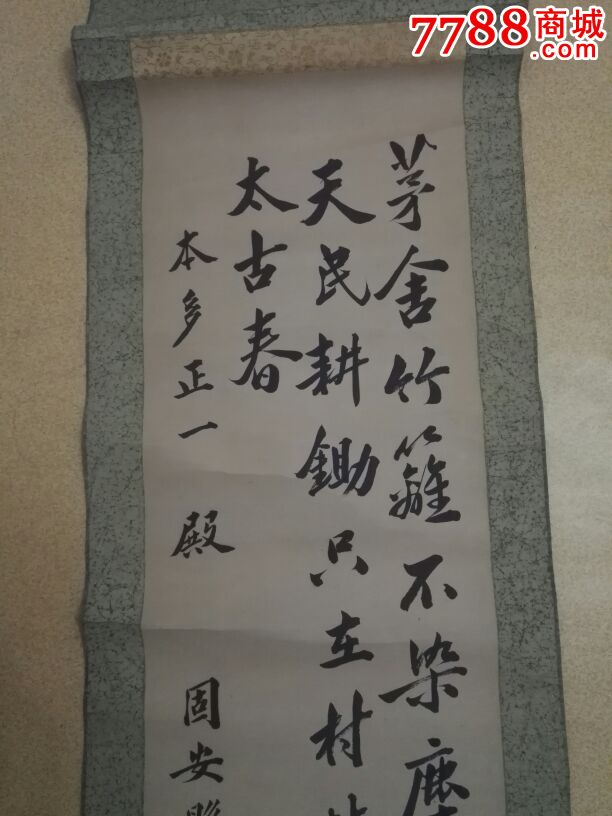 7788商城
.com
茅舍竹籬不染塵
天民耕鋤只在村
太古春
本多正一 殿
固安